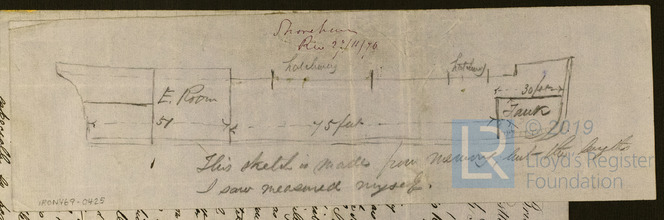 Rec 22/11/76
hatchway
hatchway
E. Room
30 feet
Tank
51
75 feet
This sketch is made from memory but the lengths
I saw measured myself.
IRON469-0425
LR
© 2019
Lloyd's Register
Foundation